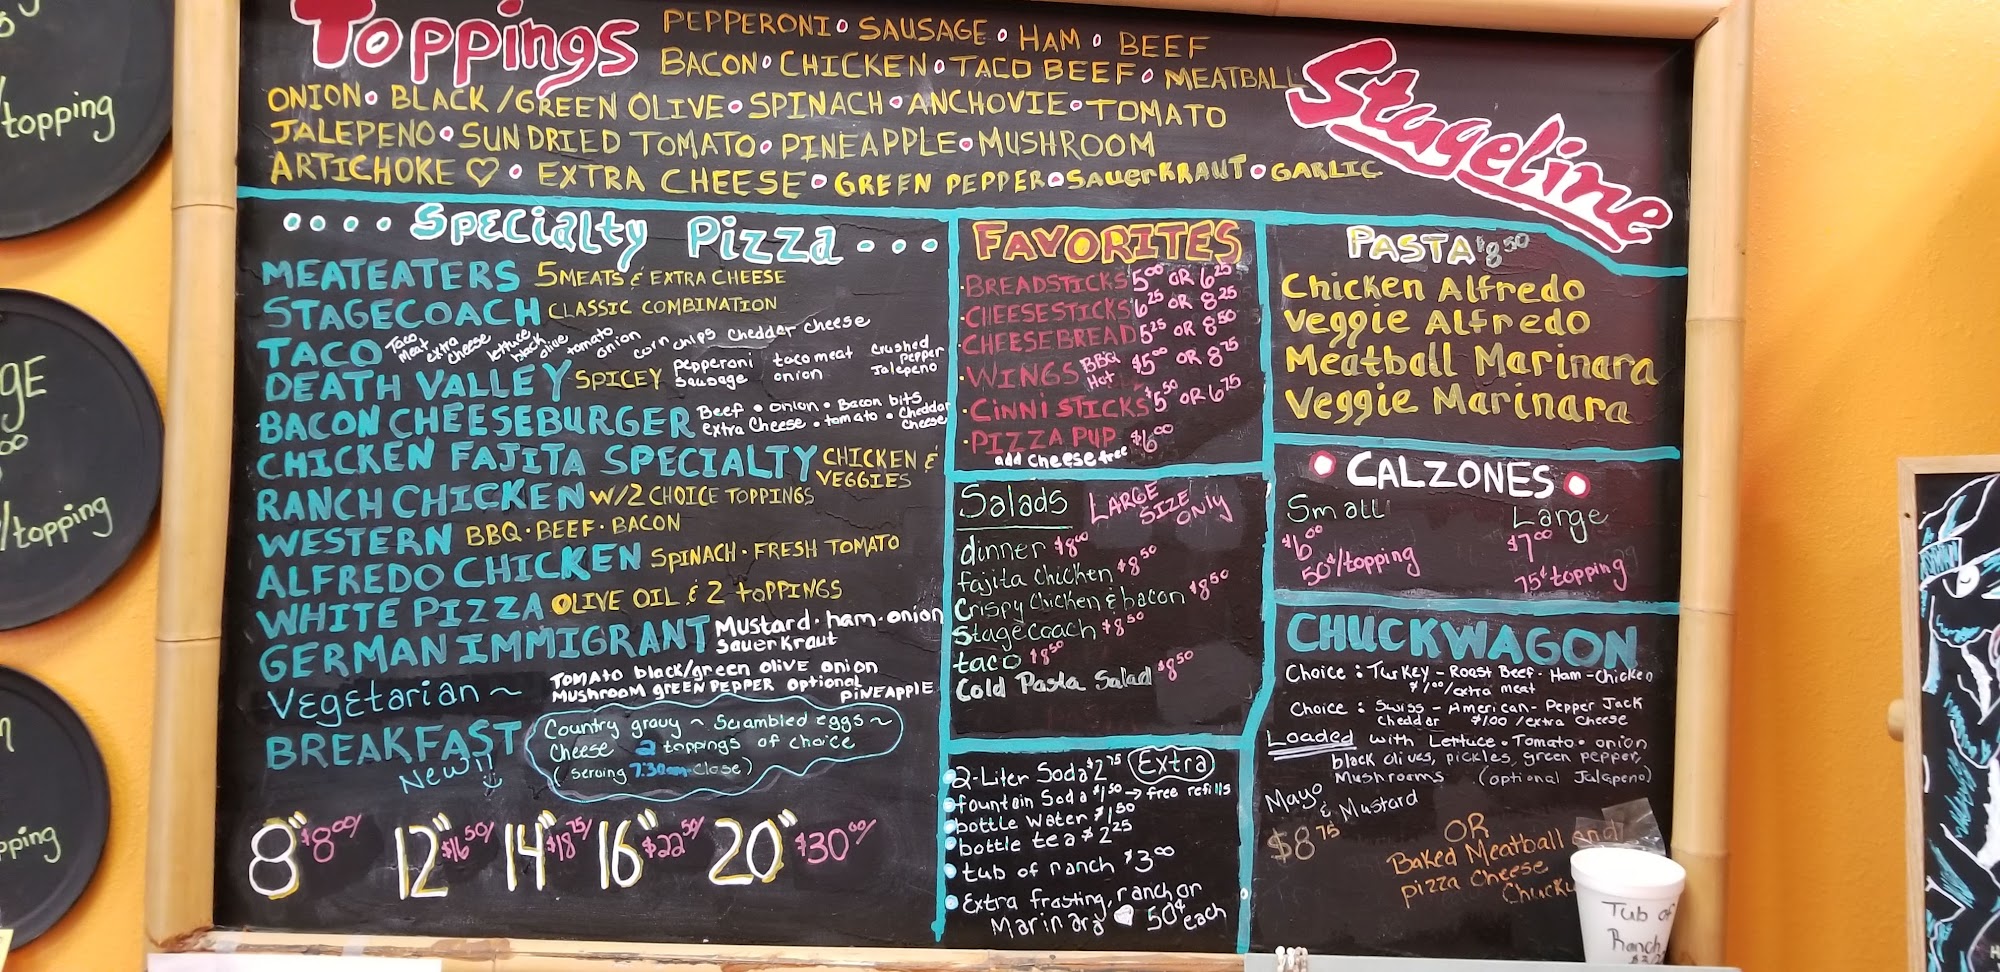 Toppings
PEPPERONI • SAUSAGE • HAM • BEEF
BACON • CHICKEN • TACO BEEF • MEATBALL
ONION • BLACK/GREEN OLIVE • SPINACH • ANCHOVIE • TOMATO
JALEPENO • SUN DRIED TOMATO • PINEAPPLE • MUSHROOM
ARTICHOKE ♡ • EXTRA CHEESE • GREEN PEPPER • SAUERKRAUT • GARLIC
Stageline
.... Specialty Pizza ...
MEATEATERS 5 MEATS & EXTRA CHEESE
STAGECOACH CLASSIC COMBINATION
TACO Taco Meat extra cheese lettuce black olive tomato onion corn chips chedder cheese
DEATH VALLEY SPICEY pepperoni sausage taco meat onion crushed pepper Jalepeno
BACON CHEESEBURGER Beef • onion • Bacon bits
extra cheese • tomato • cheddar cheese
CHICKEN FAJITA SPECIALTY CHICKEN & VEGGIES
RANCH CHICKEN W/2 CHOICE TOPPINGS
WESTERN BBQ • BEEF • BACON
ALFREDO CHICKEN SPINACH • FRESH TOMATO
WHITE PIZZA OLIVE OIL & 2 TOPPINGS
GERMAN IMMIGRANT Mustard • ham • onion
sauerkraut
Vegetarian ~ TOMATO black/green OLIVE onion
MUSHROOM GREEN PEPPER optional PINEAPPLE
BREAKFAST Country gravy ~ Scrambled eggs ~
Cheese 2 toppings of choice
(serving 7:30am-Close)
New!!
8" $8.00/ 12" $16.50/ 14" $18.75/ 16" $22.50/ 20" $30.00/
FAVORITES
• BREADSTICKS 5.00 OR 6.25
• CHEESESTICKS 6.25 OR 8.25
• CHEESEBREAD 5.25 OR 8.50
• WINGS BBQ Hot $5.00 OR 8.75
• CINNISTICKS $5.50 OR 6.75
• PIZZA PUP $6.00
add cheese free
Salads LARGE SIZE ONLY
dinner $8.00
fajita chicken $8.50
Crispy Chicken & bacon $8.50
Stagecoach $8.50
taco $8.50
Cold Pasta Salad $8.50
2-Liter Soda $2.75 Extra
fountain Soda $1.50 → free refills
bottle water $1.50
bottle tea $2.25
tub of ranch $3.00
Extra frosting, ranch or
Marinara 50¢ each
PASTA $8.50
Chicken Alfredo
Veggie Alfredo
Meatball Marinara
Veggie Marinara
• CALZONES •
Small Large
$6.00 $7.00
50¢/topping 75¢ topping
CHUCKWAGON
Choice : Turkey - Roast Beef - Ham - Chicken
$1.00/extra meat
Choice : Swiss - American - Pepper Jack
Chedder $1.00/extra cheese
Loaded with Lettuce • Tomato • onion
black olives, pickles, green pepper,
Mushrooms (optional Jalapeno)
Mayo & Mustard
$8.75
OR
Baked Meatball and
pizza cheese
Tub of
Ranch
/topping
GE
/topping
pping